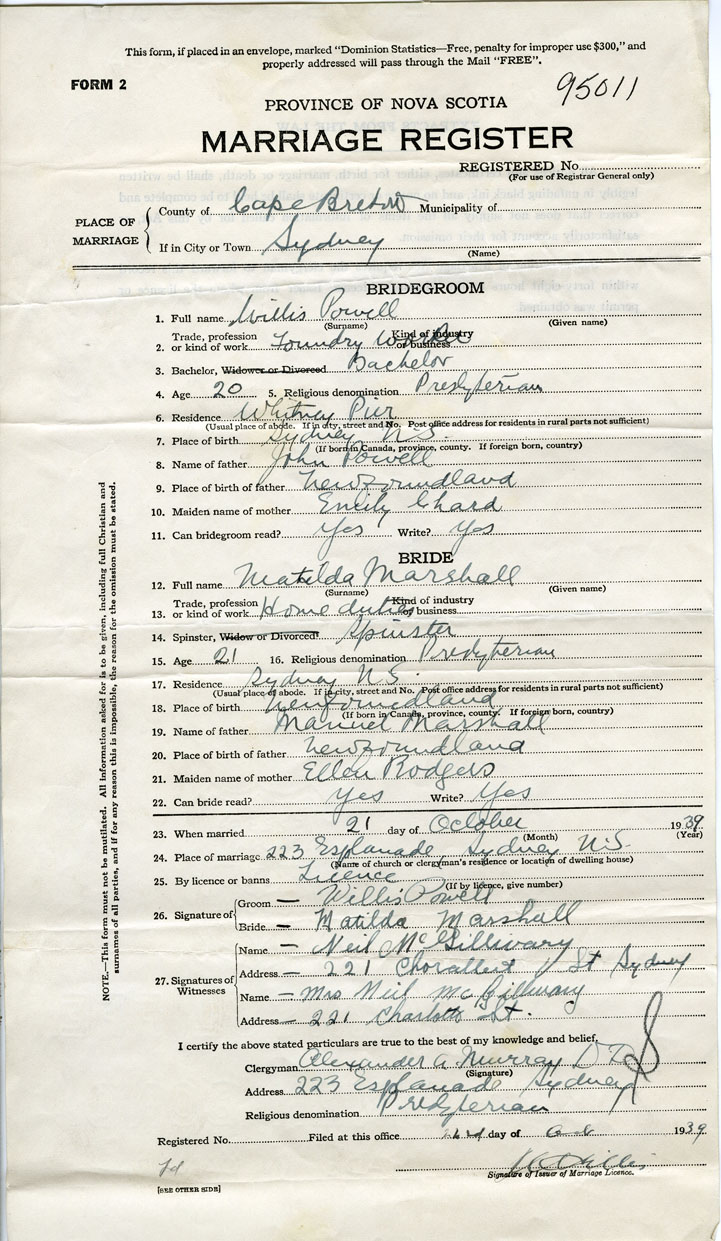 This form, if placed in an envelope, marked "Dominion Statistics—Free, penalty for improper use $300," and
properly addressed will pass through the Mail "FREE".
FORM 2
95011
PROVINCE OF NOVA SCOTIA
MARRIAGE REGISTER
REGISTERED No.
(For use of Registrar General only)
PLACE OF MARRIAGE
County of Cape Breton Municipality of
If in City or Town Sydney
(Name)
BRIDEGROOM
1. Full name Willis Powell
(Surname) (Given name)
2. Trade, profession or kind of work Foundry Worker Kind of industry or business
3. Bachelor, Widower or Divorced Bachelor
4. Age 20 5. Religious denomination Presbyterian
6. Residence Whitney Pier
(Usual place of abode. If in city, street and No. Post office address for residents in rural parts not sufficient)
7. Place of birth Sydney N.S.
(If born in Canada, province, county. If foreign born, country)
8. Name of father John Powell
9. Place of birth of father Newfoundland
10. Maiden name of mother Emily Chard
11. Can bridegroom read? Yes Write? Yes
BRIDE
12. Full name Matilda Marshall
(Surname) (Given name)
13. Trade, profession or kind of work Home duties Kind of industry or business
14. Spinster, Widow or Divorced Spinster
15. Age 21 16. Religious denomination Presbyterian
17. Residence Sydney N.S.
(Usual place of abode. If in city, street and No. Post office address for residents in rural parts not sufficient)
18. Place of birth Newfoundland
(If born in Canada, province, county. If foreign born, country)
19. Name of father Manuel Marshall
20. Place of birth of father Newfoundland
21. Maiden name of mother Ellen Rodgers
22. Can bride read? Yes Write? Yes
23. When married 21 day of October 1939
(Month) (Year)
24. Place of marriage 223 Esplanade, Sydney N.S.
(Name of church or clergyman's residence or location of dwelling house)
25. By licence or banns Licence
(If by licence, give number)
26. Signature of
Groom — Willis Powell
Bride — Matilda Marshall
27. Signatures of Witnesses
Name — Neil McGillivary
Address — 221 St Sydney
Name — Mrs Neil McGillivary
Address — 221 Charlotte St.
I certify the above stated particulars are true to the best of my knowledge and belief.
Clergyman Alexander A. Murray
(Signature)
Address 223 Esplanade Sydney
Religious denomination Presbyterian
Registered No. Filed at this office day of 1939
Signature of Issuer of Marriage Licence.
[SEE OTHER SIDE]
NOTE.—This form must not be mutilated. All information asked for is to be given, including full Christian and
surnames of all parties, and if for any reason this is impossible, the reason for the omission must be stated.